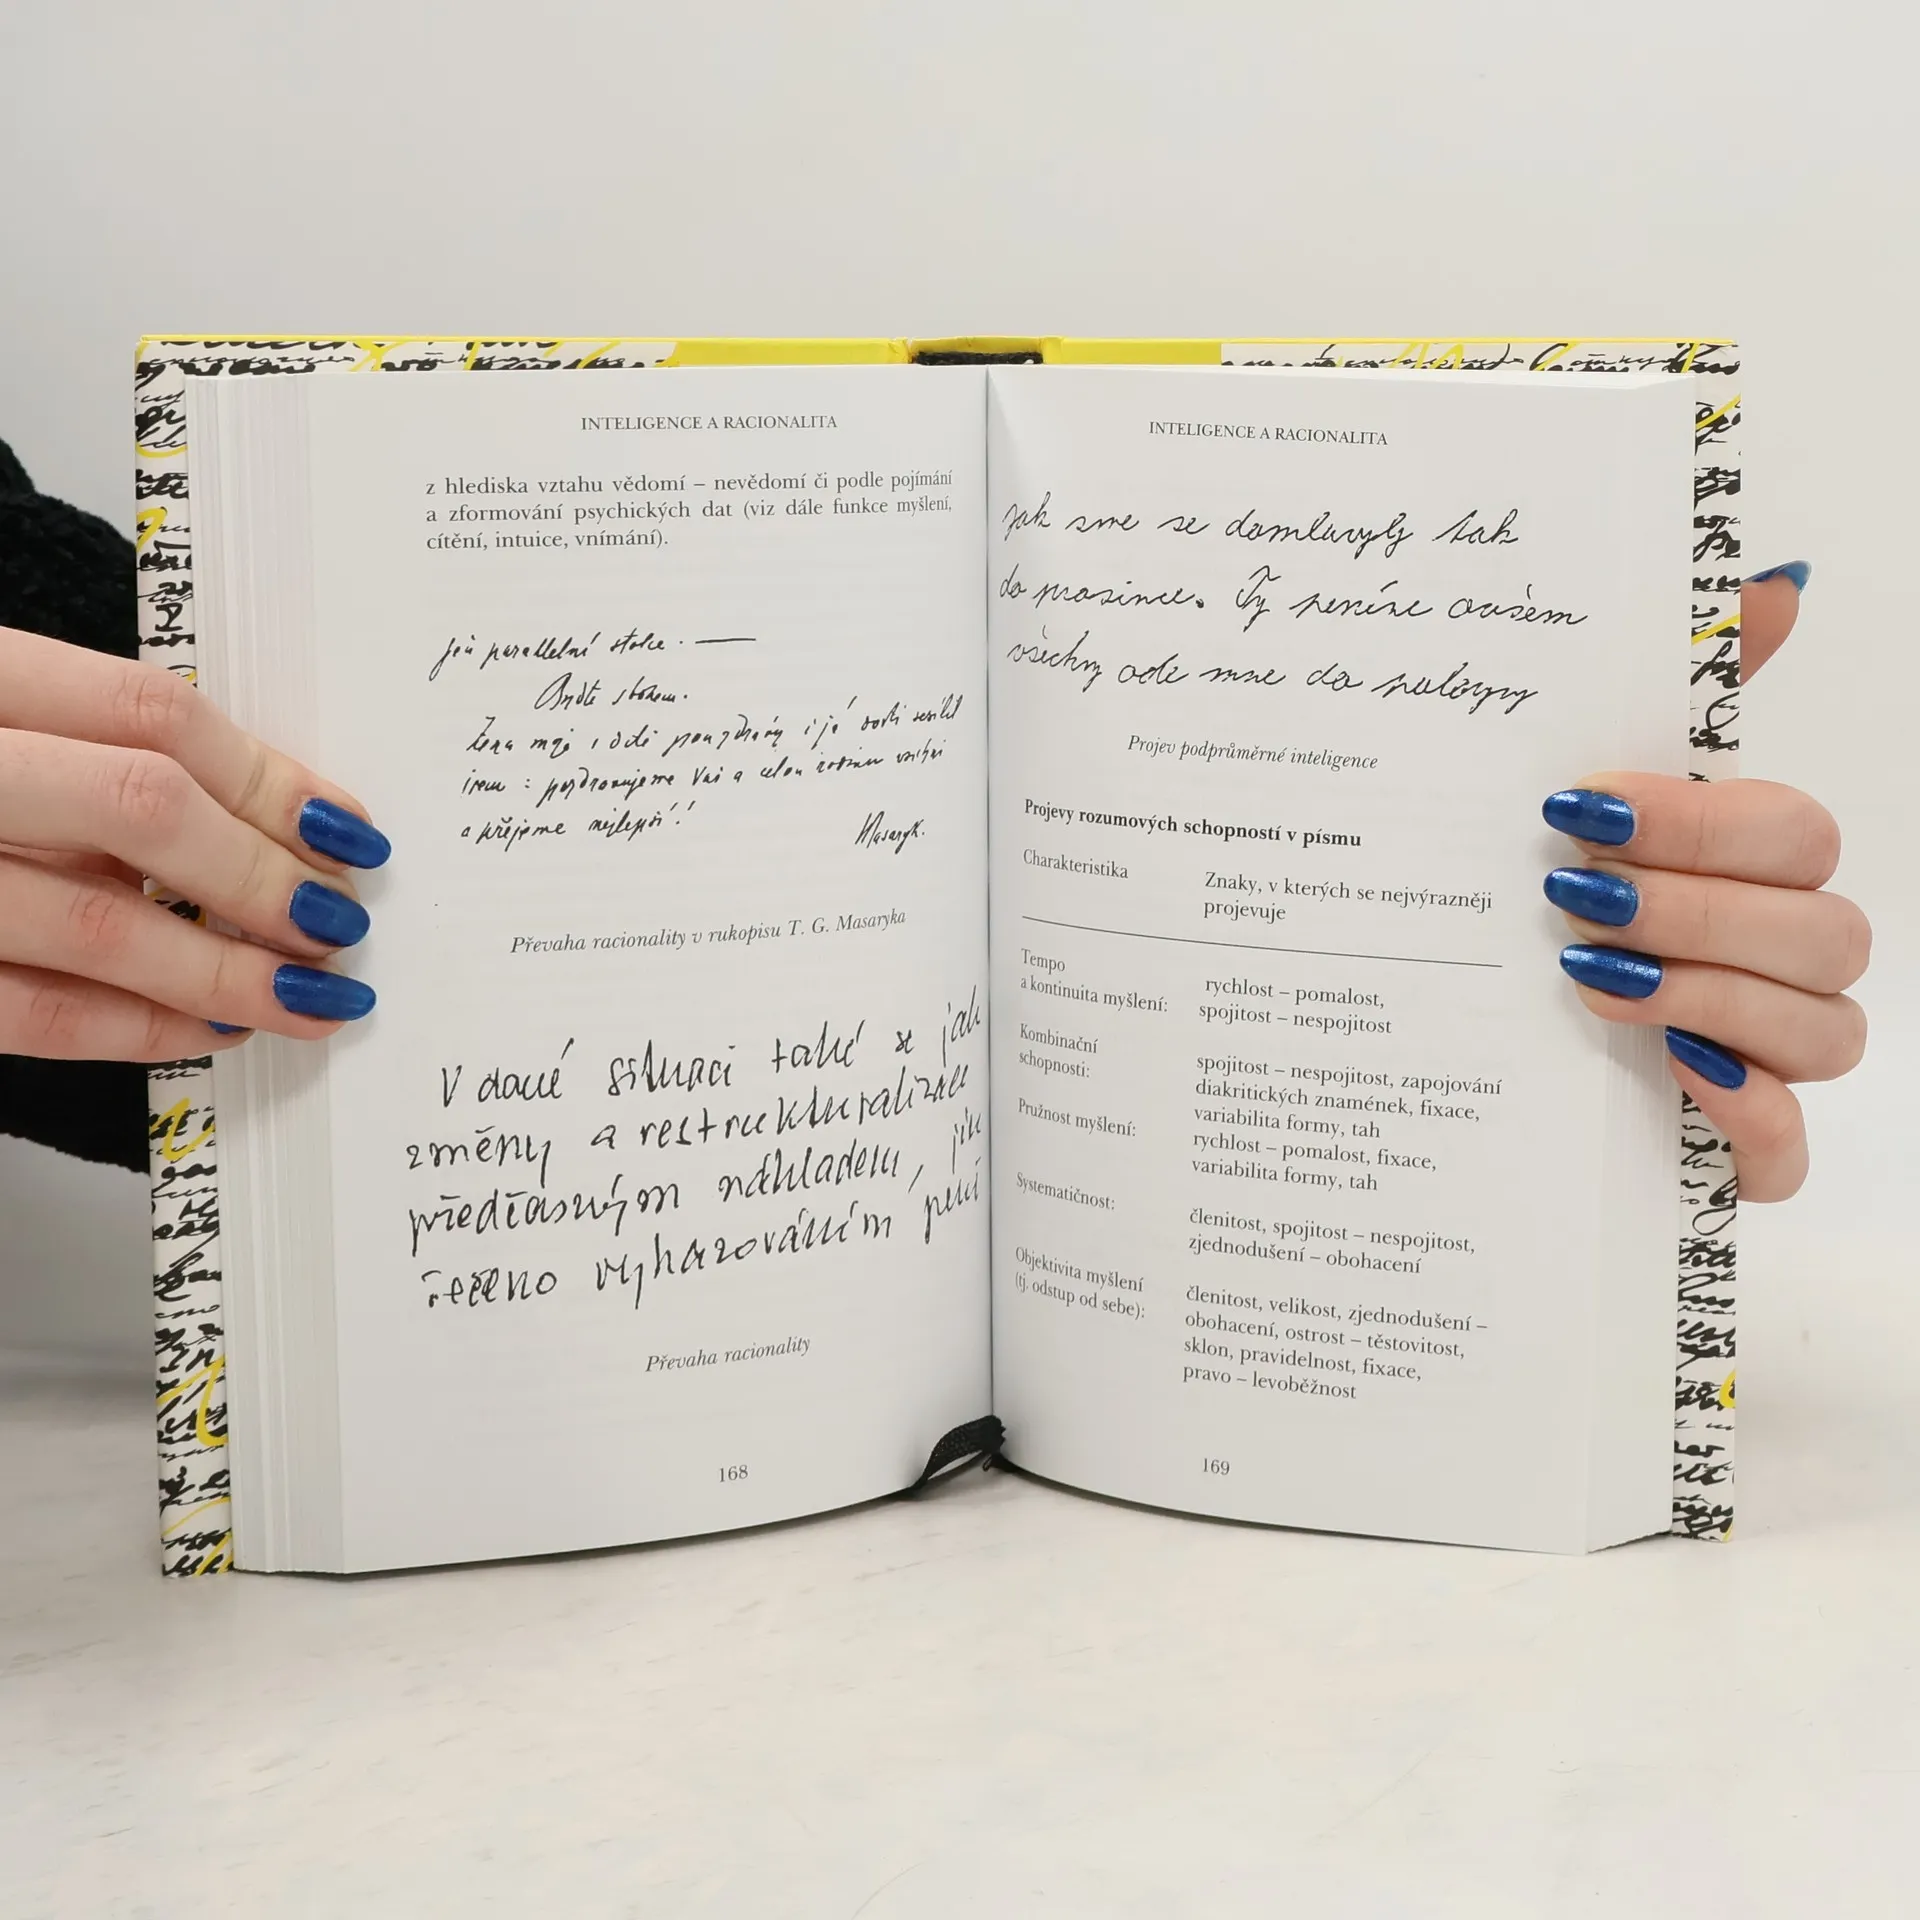 INTELIGENCE A RACIONALITA
z hlediska vztahu vědomí – nevědomí či podle pojímání
a zformování psychických dat (viz dále funkce myšlení,
cítění, intuice, vnímání).
parallelní stolce. —
Buďte sbohem.
Žena moje i děti pozdravují i já
pozdravujeme Vás a celou rodinu
a přejeme nejlepší!
Masaryk.
Převaha racionality v rukopisu T. G. Masaryka
V dané situaci také se jak
změny a restrukturalizace
předčasným nákladem,
řečeno vyhazováním peněz
Převaha racionality
168
INTELIGENCE A RACIONALITA
Jak sme se domluvyly tak
do prosince. Ty peníze ovšem
všechny ode mne do polovyny
Projev podprůměrné inteligence
Projevy rozumových schopností v písmu
Charakteristika
Znaky, v kterých se nejvýrazněji
projevuje
Tempo
a kontinuita myšlení:
rychlost – pomalost,
spojitost – nespojitost
Kombinační
schopnosti:
spojitost – nespojitost, zapojování
diakritických znamének, fixace,
variabilita formy, tah
Pružnost myšlení:
rychlost – pomalost, fixace,
variabilita formy, tah
Systematičnost:
členitost, spojitost – nespojitost,
zjednodušení – obohacení
Objektivita myšlení
(tj. odstup od sebe):
členitost, velikost, zjednodušení –
obohacení, ostrost – těstovitost,
sklon, pravidelnost, fixace,
pravo – levoběžnost
169